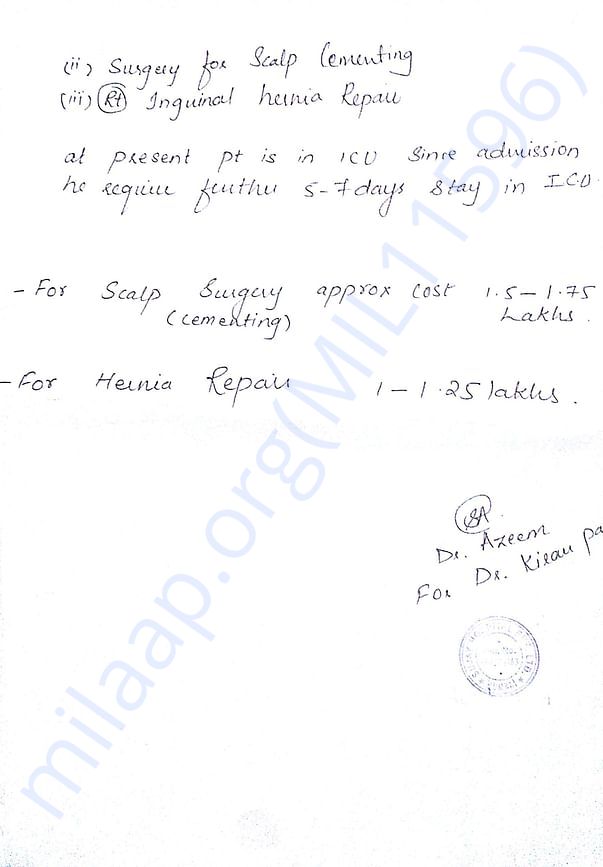 (ii) Surgery for Scalp Cementing
(iii) Rt Inguinal hernia Repair
at present pt is in ICU since admission
he require further 5-7 days stay in ICU.
- For Scalp Surgery approx cost 1.5 - 1.75
(cementing) Lakhs.
- For Hernia Repair 1 - 1.25 lakhs.
SA
Dr. Azeem
For Dr. Kiran Pa
milaap.org(MIL11596)